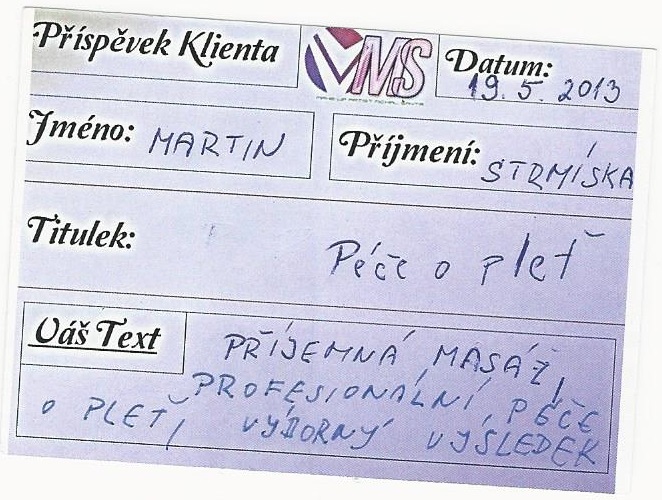 Příspěvek Klienta
MS
Datum:
19. 5. 2013
Jméno: MARTIN
Příjmení: STRMÍSKA
Titulek: Péče o pleť
Váš Text
PŘÍJEMNÁ MASÁŽ,
PROFESIONÁLNÍ, PÉČE
O PLEŤ, VÝBORNÝ VÝSLEDEK